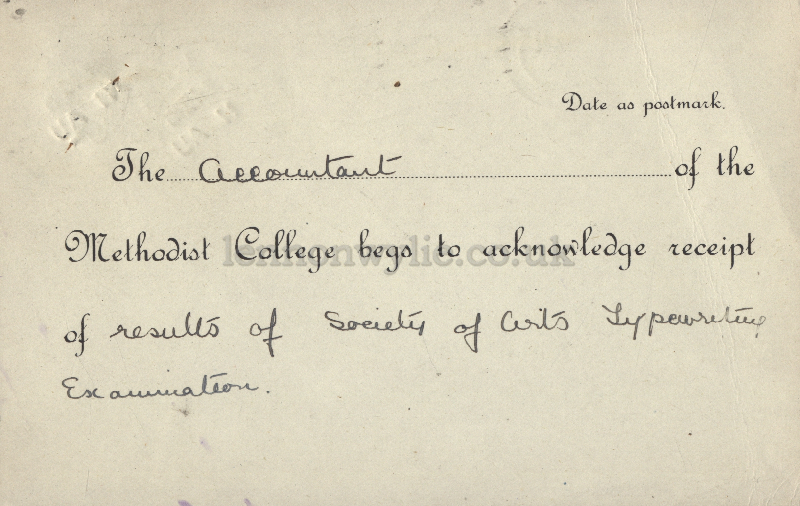 Date as postmark.
The accountant of the
Methodist College begs to acknowledge receipt
lennonwylie.co.uk
of results of Society of Arts Typewriting
Examination.